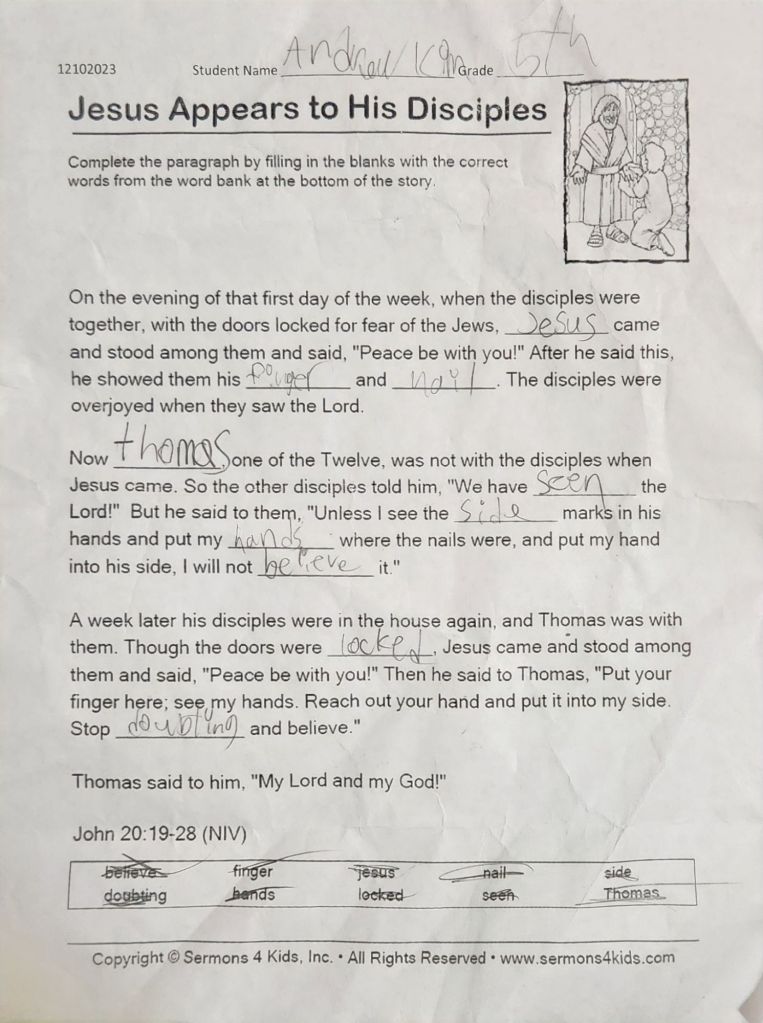 12102023 Student Name Andrew Kim Grade 5th
Jesus Appears to His Disciples
Complete the paragraph by filling in the blanks with the correct
words from the word bank at the bottom of the story.
On the evening of that first day of the week, when the disciples were
together, with the doors locked for fear of the Jews, Jesus came
and stood among them and said, "Peace be with you!" After he said this,
he showed them his finger and nail. The disciples were
overjoyed when they saw the Lord.
Now thomas, one of the Twelve, was not with the disciples when
Jesus came. So the other disciples told him, "We have seen the
Lord!" But he said to them, "Unless I see the side marks in his
hands and put my hands where the nails were, and put my hand
into his side, I will not believe it."
A week later his disciples were in the house again, and Thomas was with
them. Though the doors were locked, Jesus came and stood among
them and said, "Peace be with you!" Then he said to Thomas, "Put your
finger here; see my hands. Reach out your hand and put it into my side.
Stop doubting and believe."
Thomas said to him, "My Lord and my God!"
John 20:19-28 (NIV)
believe finger jesus nail side
doubting hands locked seen Thomas
Copyright © Sermons 4 Kids, Inc. • All Rights Reserved • www.sermons4kids.com